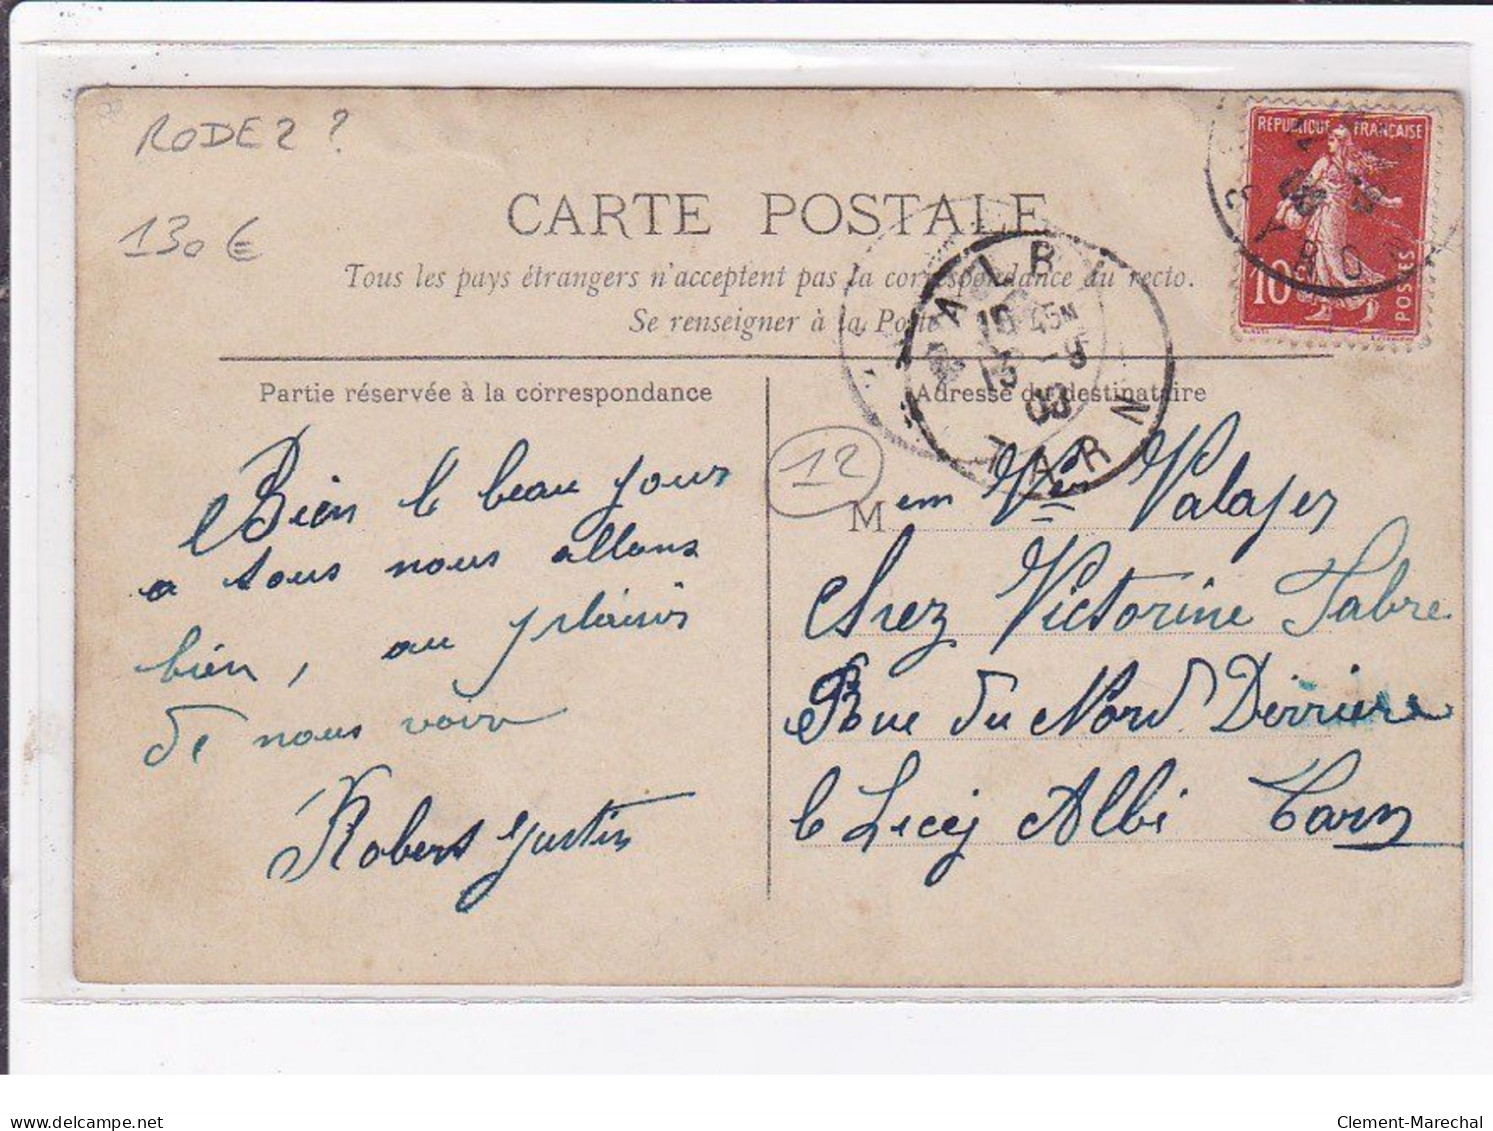 RODEZ ?
130 €
REPUBLIQUE FRANÇAISE
10 POSTES
CARTE POSTALE
Tous les pays étrangers n'acceptent pas la correspondance au recto.
Se renseigner à la Poste
ALBI
10 45M
15 -9
08
TARN
Partie réservée à la correspondance
Adresse du destinataire
12
Bien le beau jour
a tous nous allons
bien, au plaisir
de nous voir
Robert Justin
Mem Ven Valajer
Chez Victorine Fabre
Rue du Nord Dérriere
le Liceÿ Albi Tarn
Clement-Marechal
delcampe.net